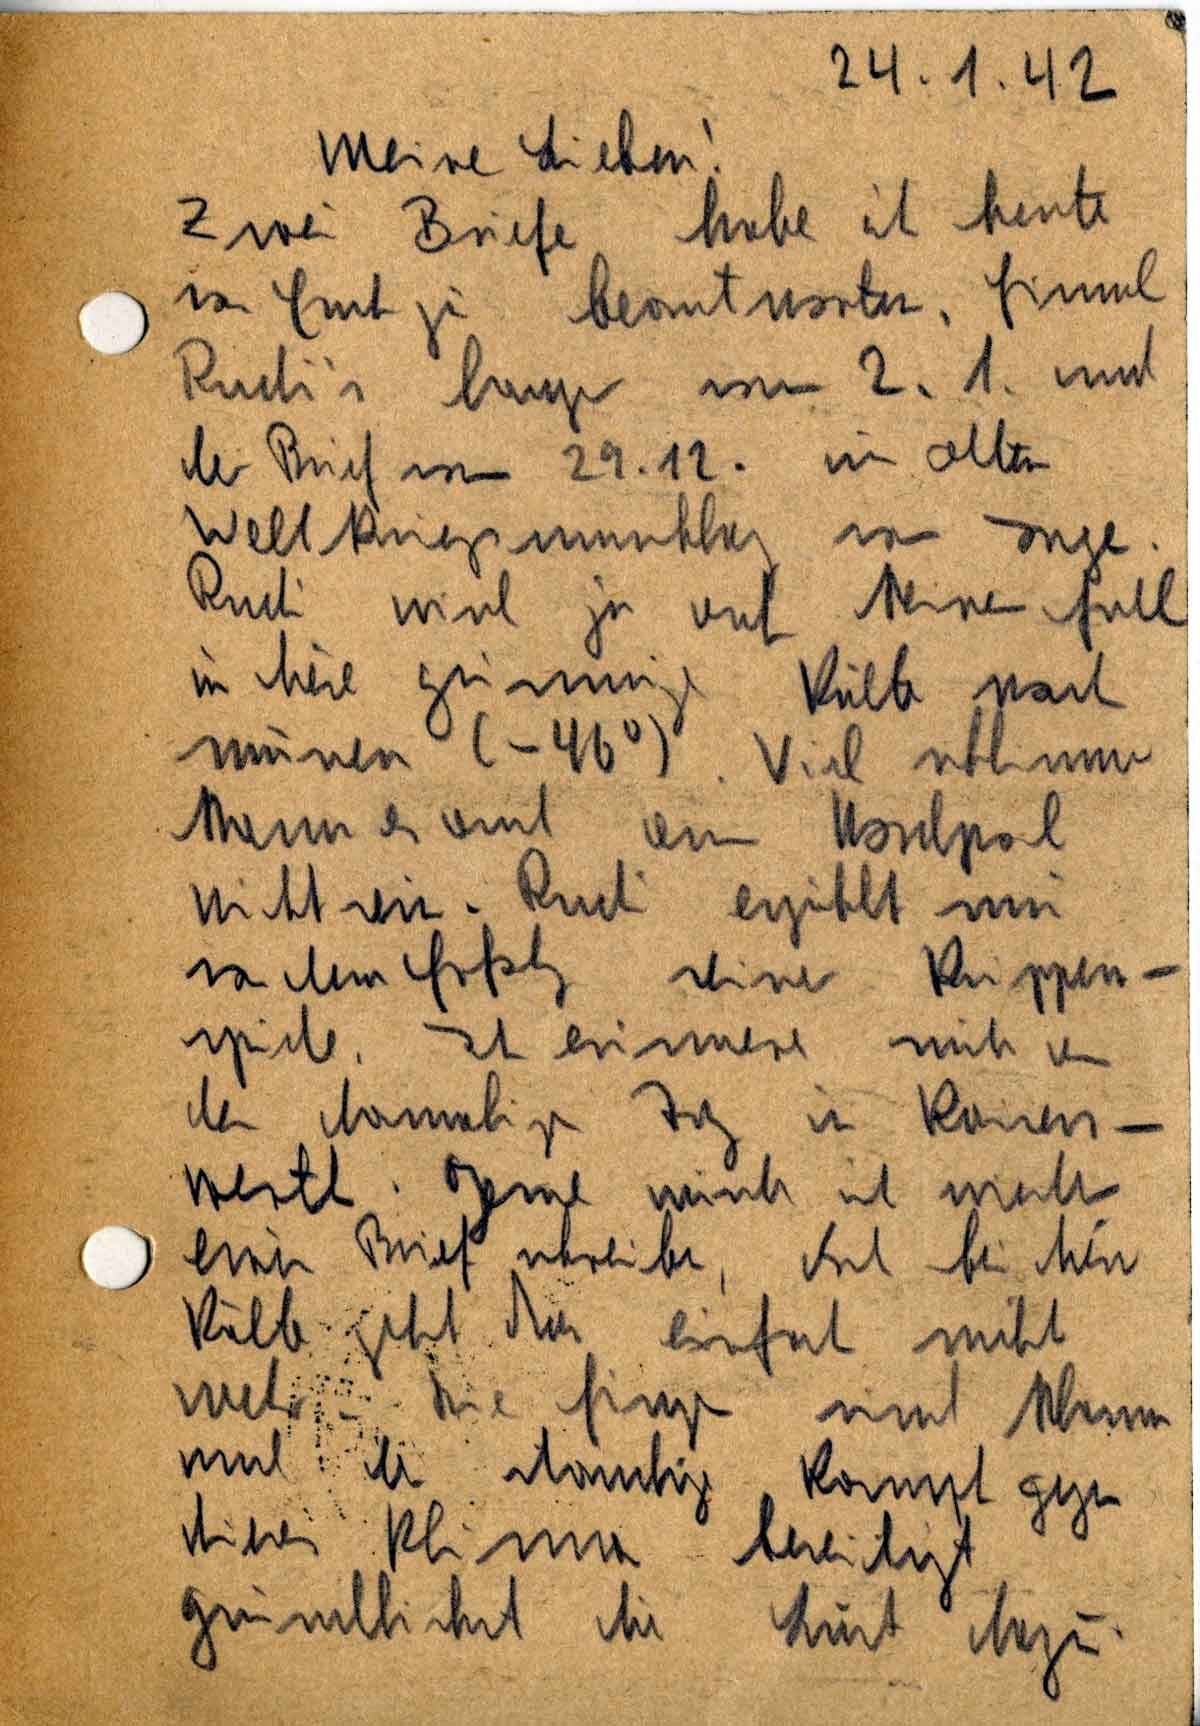 24.1.42
Meine Lieben!
Zwei Briefe habe ich heute
von Euch zu beantworten. Einmal
Rudi's langer vom 2.1. und
der Brief vom 29.12. im alten
Weltkriegsumschlag von Inge.
Rudi wird ja auf keinen Fall
in diese grimmige Kälte nach
müssen (-46°). Viel schlimmer
kann es auch am Nordpol
nicht sein. Rudi erzählt mir
von dem Erfolg seiner Krippen-
spiele. Ich erinnere mich an
den damaligen Tag in Kaisers-
werth. Gerne würde ich mehr
einen Brief schreiben, doch bei dieser
Kälte geht das einfach nicht
mehr. Die Finger sind klamm
und der ständige Kampf gegen
dieses Klima beseitigt
gründlichst die Lust dazu.